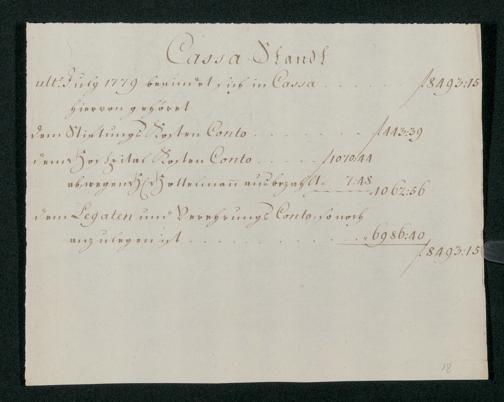 Cassa Standt
ult. July 1779 befindet sich in Cassa . . . . . f 8493:15
hiervon gehöret
dem Stiftungs Kosten Conto . . . . . f 443:39
dem Hospital Kosten Conto . . . . f 1070:44
ab wegen ausbezahlt. 7:48 1062:56
dem Legaten und Verehrungs Conto, so noch
anzulegen ist . . . . . . . . . . 6986:40
f 8493:15
18